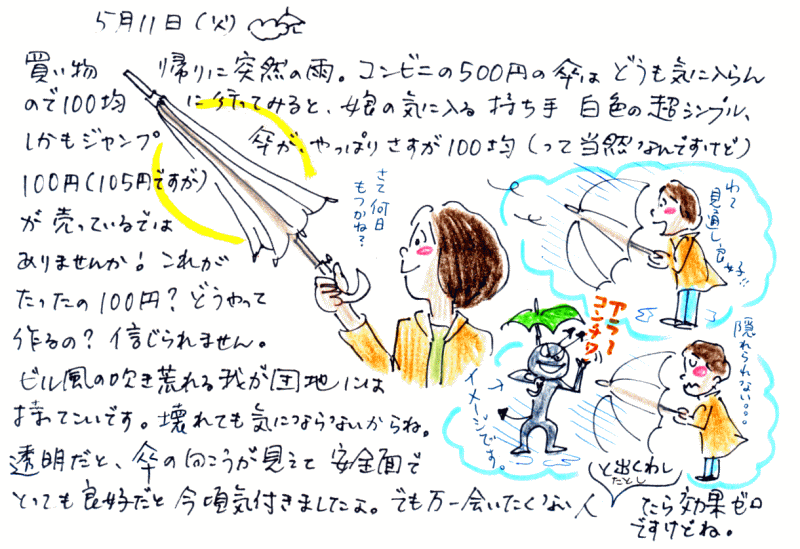 5月11日(火)
買い物帰りに突然の雨。コンビニの500円の傘はどうも気に入らん
ので100均に行ってみると、娘の気に入る持ち手白色の超シンプル、
しかもジャンプ傘が、やっぱりさすが100均(って当然なんですけど)
100円(105円ですが)
が売っているでは
ありませんか!これが
たったの100円?どうやって
作るの?信じられません。
ビル風の吹き荒れる我が団地には
持ってこいです。壊れても気にならないからね。
透明だと、傘の向こうが見えて安全面で
とっても良好だと今頃気付きましたよ。でも万一会いたくない人
と出くわし
たとし
てたら効果ゼロ
ですけどね。
さて何日
もつかね?
わて
見通し良
好!!
アラー
コンチワ
イメージです。
隠れられない。。。